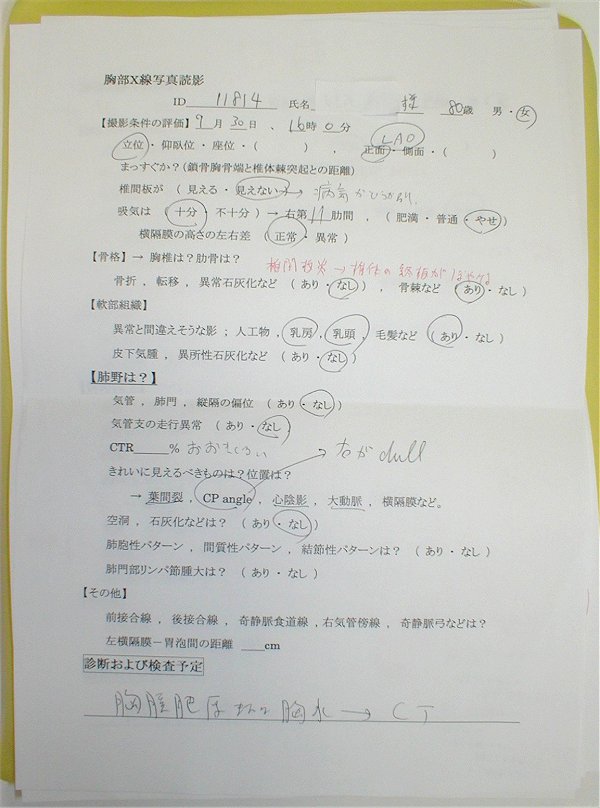 胸部X線写真読影
ID 11814 氏名 様 80歳 男・女
【撮影条件の評価】 9月 30日 、 16時 0分
LAO
立位・仰臥位・座位・( ) 正面・側面・( )
まっすぐか？(鎖骨胸骨端と椎体棘突起との距離)
椎間板が (見える・見えない) → 病気か
吸気は (十分・不十分) → 右第11肋間 , (肥満・普通・やせ)
横隔膜の高さの左右差 (正常・異常)
【骨格】 → 胸椎は？肋骨は？
骨折 , 転移 , 異常石灰化など (あり・なし) 骨棘など (あり・なし)
【軟部組織】
異常と間違えそうな影 ; 人工物 , 乳房 , 乳頭 , 毛髪など (あり・なし)
皮下気腫 , 異所性石灰化など (あり・なし)
【肺野は？】
気管 , 肺門 , 縦隔の偏位 (あり・なし)
気管支の走行異常 (あり・なし)
CTR %
きれいに見えるべきものは？位置は？ 右がdull
→ 葉間裂 , CP angle , 心陰影 , 大動脈 , 横隔膜など。
空洞 , 石灰化などは？ (あり・なし)
肺胞性パターン , 間質性パターン , 結節性パターンは？ (あり・なし)
肺門部リンパ節腫大は？ (あり・なし)
【その他】
前接合線 , 後接合線 , 奇静脈食道線 ,右気管傍線 , 奇静脈弓などは？
左横隔膜－胃泡間の距離 cm
診断および検査予定
胸膜肥厚または胸水 → CT